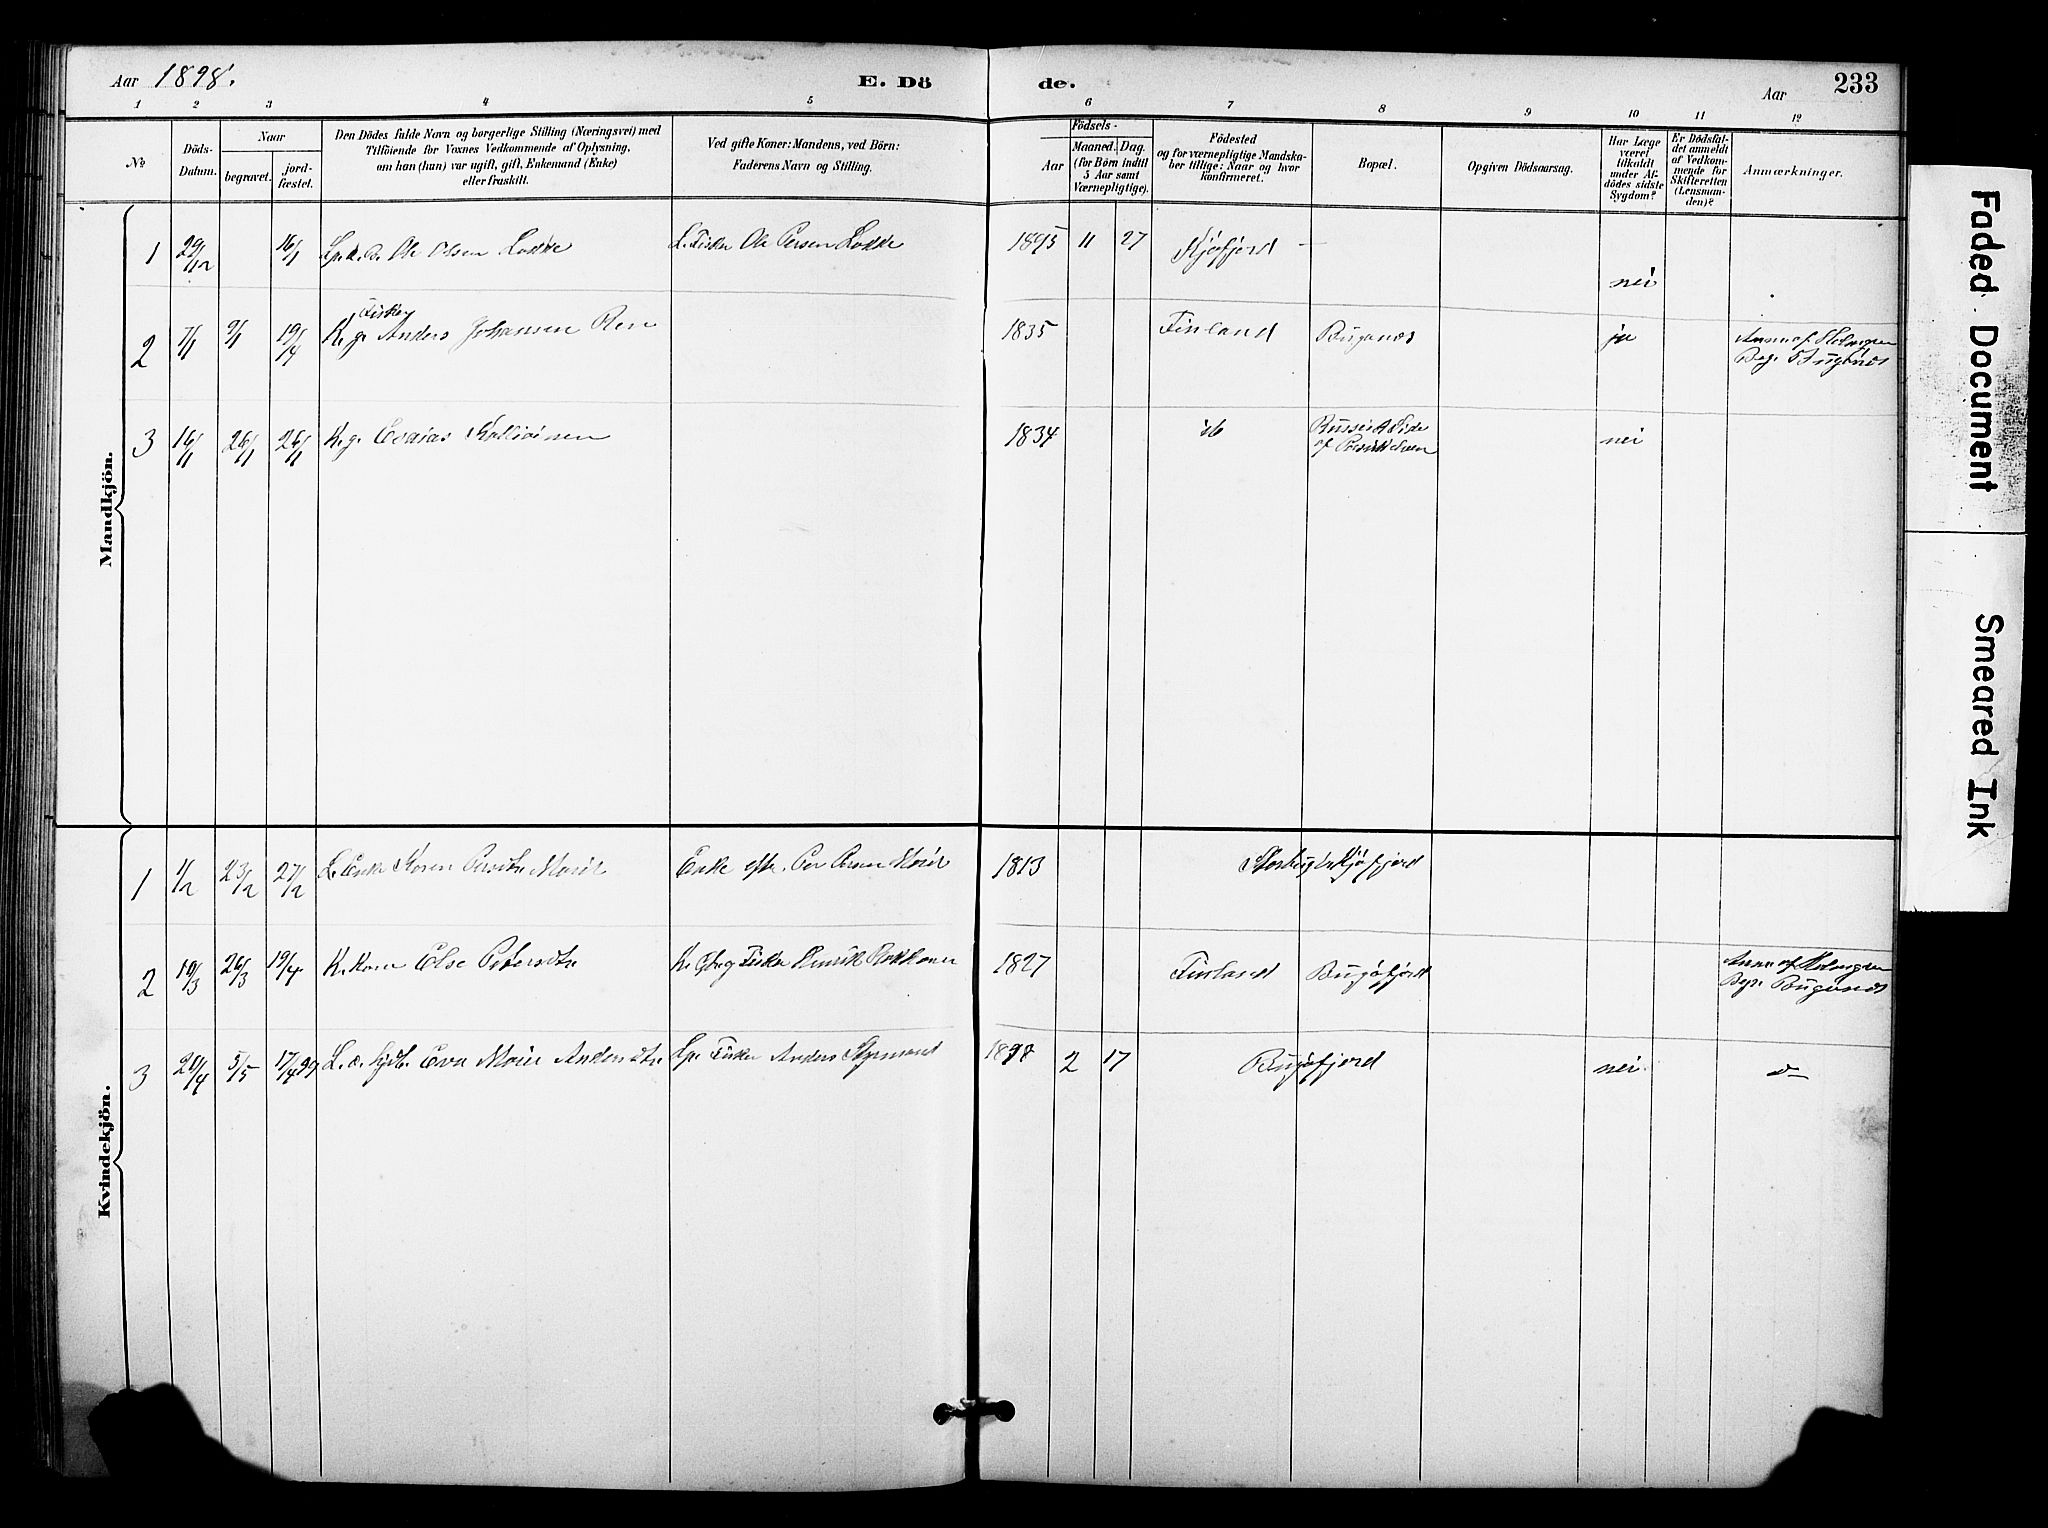 Aar 1898.
E. Dö
de.
Aar
233
1 2 3 4 5 6 7 8 9 10 11 12
No
Döds-
Datum.
Naar
begravet.
jord-
fæstet.
Den Dödes fulde Navn og borgerlige Stilling (Næringsvei) med
Tilföiende for Voxnes Vedkommende af Oplysning,
om han (hun) var ugift, gift, Enkemand (Enke)
eller fraskilt.
Ved gifte Koner: Mandens, ved Börn:
Faderens Navn og Stilling.
Födsels-
Aar
Maaned. Dag.
(for Börn indtil
5 Aar samt
Værnepligtige).
Födested
og for værnepligtige Mandska-
ber tillige: Naar og hvor
konfirmeret.
Bopæl.
Opgiven Dödsaarsag.
Har Læge
været
tilkaldt
under Af-
dödes sidste
Sygdom?
Er Dödsfal-
det anmeldt
af Vedkom-
mende for
Skifteretten
(Lensman-
den)?
Anmærkninger.
Mandkjön.
1 29/12 16/1 Ole Olsen Lokke L. Fisker Ole Persen Lokke 1895 11 27 Kjøfjord nei
Fisker
2 7/1 9/1 19/4 K. g. Anders Johansen Ren 1835 Finland Bugønæs ja Anne af Holmgren
Beg. Bugønæs
3 16/1 26/1 26/1 K. g. Esaias 1834 Russisk Side nei
af
Kvindekjön.
1 1/2 23/2 27/2 L. Enke Karen Persdtr Enke efter Per Persen 1813 Kjøfjord
2 10/3 26/3 19/4 K. Kone Else Petersdtr K. Fisker Henrik 1827 Finland Bugøfjord Anne af Holmgren
Beg. Bugønæs
3 20/4 5/5 17/4 99 L. Eva Andersdtr Fisker Anders 1898 2 17 Bugøfjord nei
Faded Document
Smeared Ink